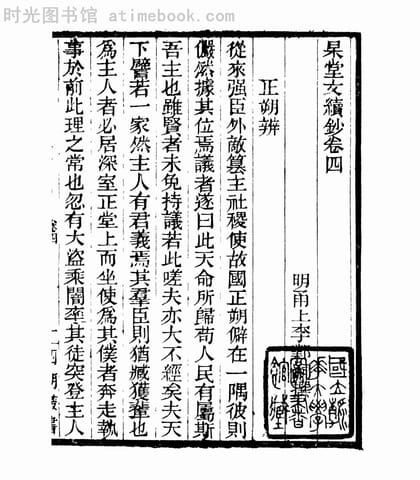 时光图书馆 atimebook.com
杲堂文續鈔卷四
明甬上李鄴嗣
正朔辨
從來强臣外敵篡主社稷使故國正朔僻在一隅彼則
儼然據其位焉議者遂曰此天命所歸苟人民有屬斯
吾主也雖賢者未免持議若此嗟夫亦大不經矣夫天
下譬若一家然主人有君義焉其羣臣則猶臧獲輩也
爲主人者必居深室正堂上而坐使爲其僕者奔走執
事於前此理之常也忽有大盜乘闇率其徒突登主人
四明叢書